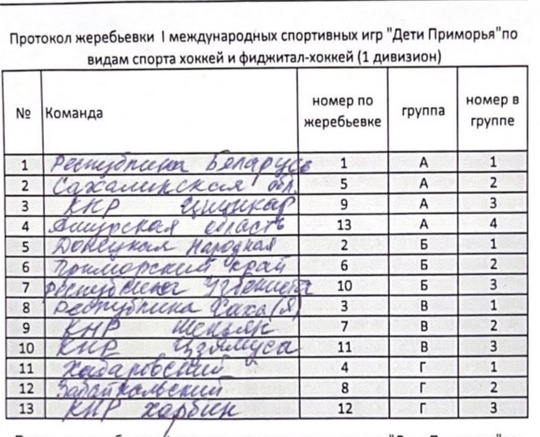 Протокол жеребьевки I международных спортивных игр "Дети Приморья"по
видам спорта хоккей и фиджитал-хоккей (1 дивизион)
№ Команда номер по жеребьевке группа номер в группе
1 Республика Беларусь 1 А 1
2 Сахалинская обл. 5 А 2
3 КНР Цицикар 9 А 3
4 Амурская область 13 А 4
5 Донецкая Народная 2 Б 1
6 Приморский край 6 Б 2
7 Республика 10 Б 3
8 Республика Саха (Я) 3 В 1
9 КНР 7 В 2
10 КНР Цзямуса 11 В 3
11 Хабаровский 4 Г 1
12 Забайкальский 8 Г 2
13 КНР Харбин 12 Г 3